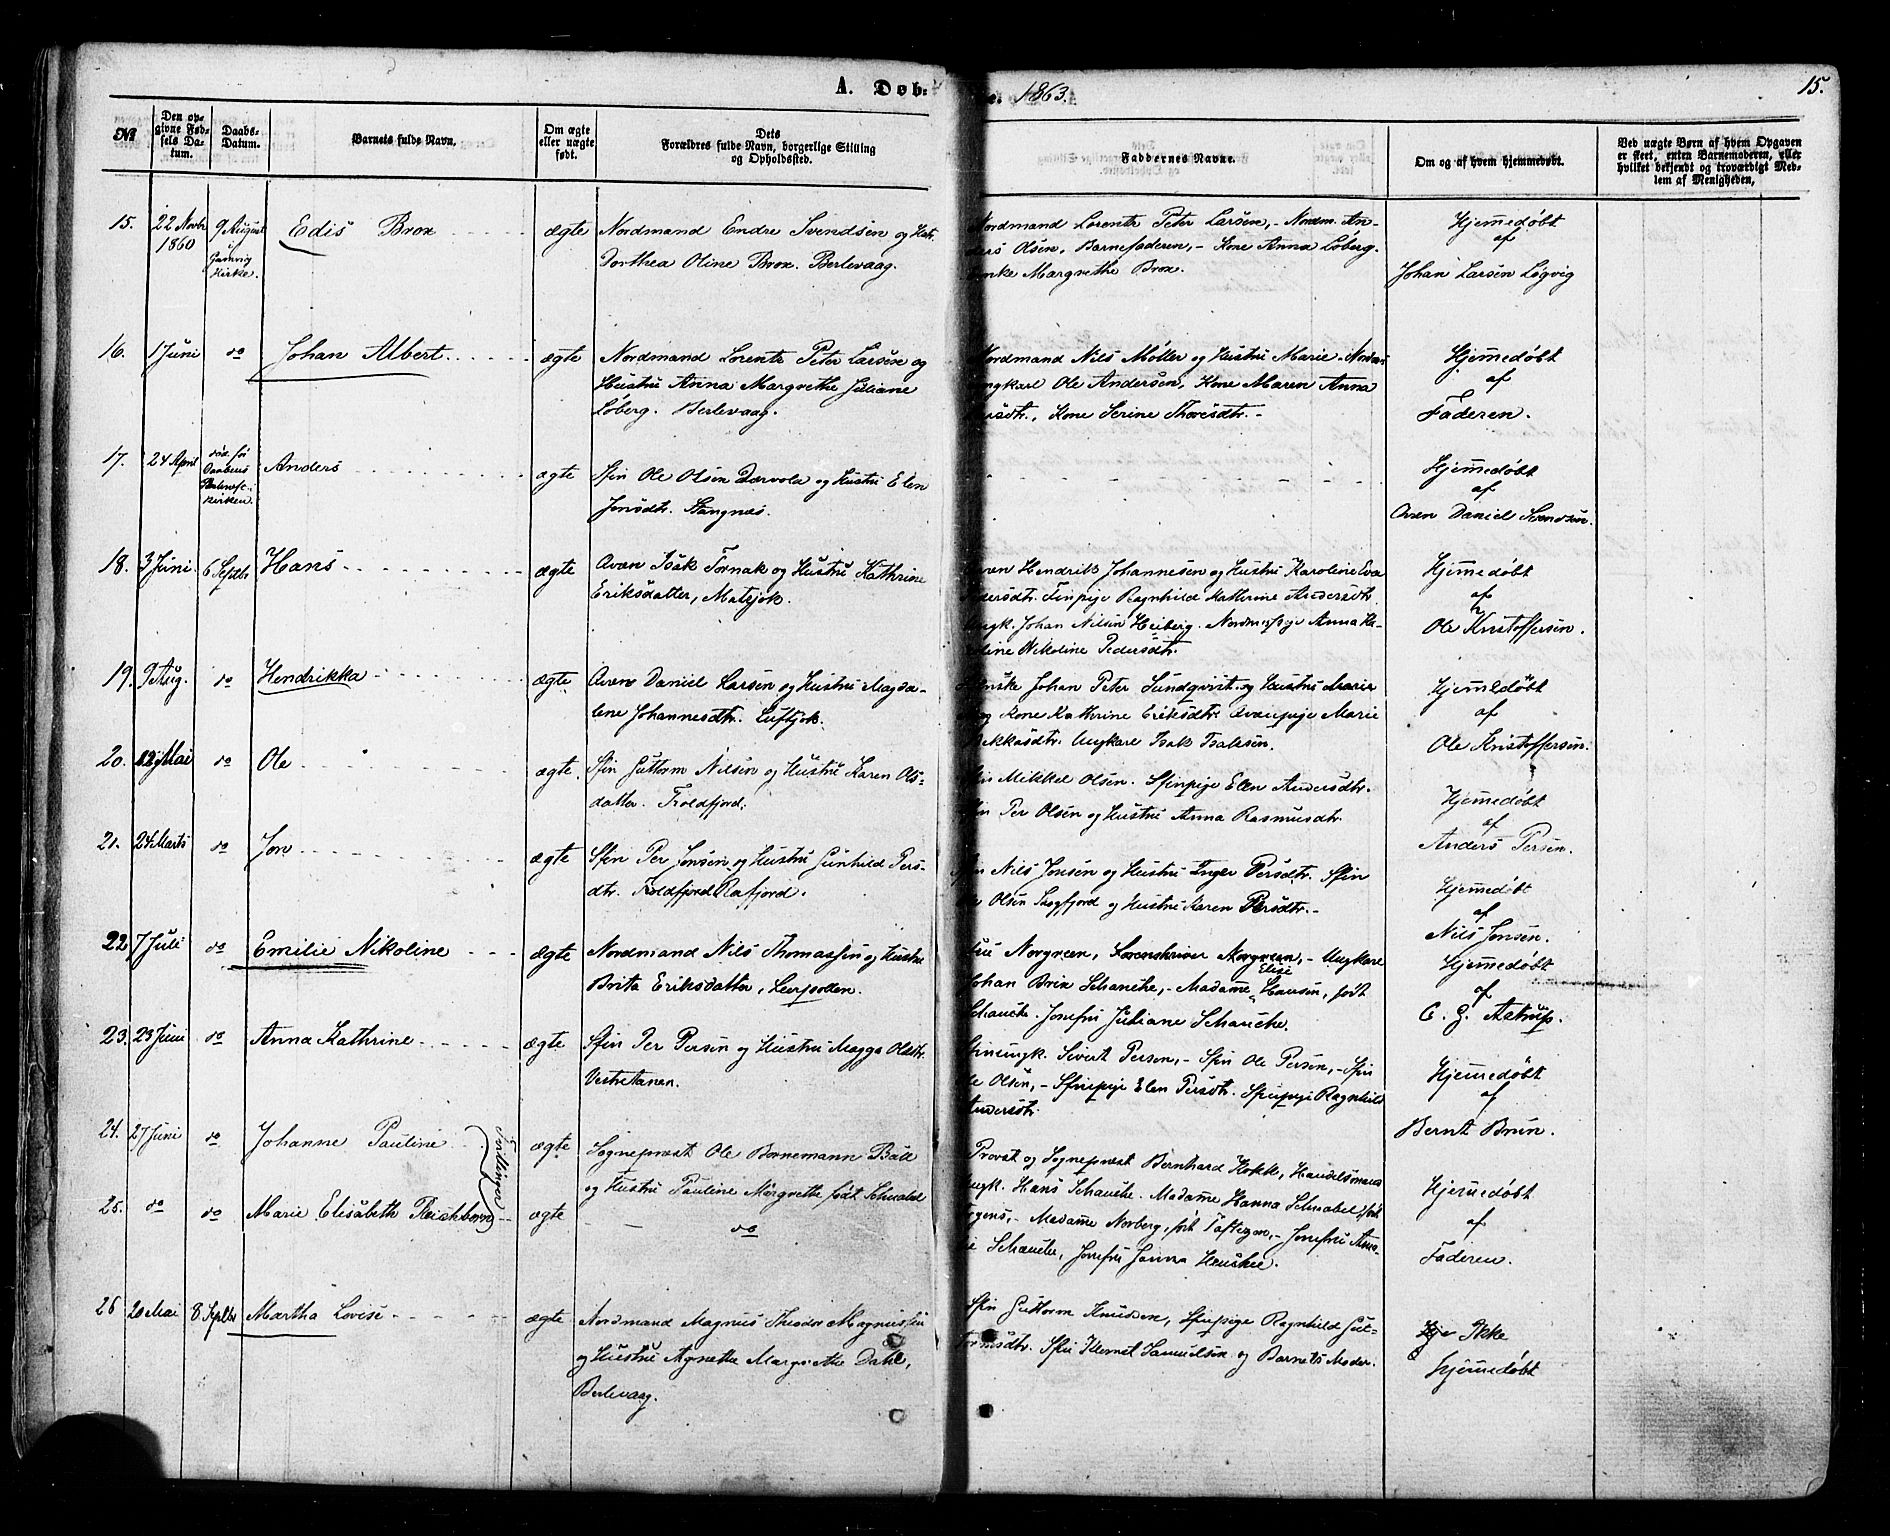 A. Døb. 1863. 15.
№
Den op-
givne Fød-
sels Da-
tum.
Daabs-
Datum.
Barnets fulde Navn.
Om ægte
eller uægte
født.
Dets
Forældres fulde Navn, borgerlige Stilling
og Opholdssted.
Faddernes Navne.
Om og af hvem hjemmedøbt.
Ved uægte Børn af hvem Opgaven
er skeet, enten Barnemoderen, eller
hvilket bekjendt og troværdigt Med-
lem af Menigheden,
15.
22 Novbr
1860
9 August
i
Gamvig
Kirke.
Edis Brox
ægte
Nordmand Endre Svendsen og Hstr.
Dorthea Oline Brox. Berlevaag.
Nordmand Lorents Peter Larsen, - Nordm. An-
ders Olsen, Barnefaderen, - Kone Anna Løberg.
Enke Margrethe Brox.
Hjemmedøbt
af
Johan Larsen Løgvig
16.
1 Juni
do
Johan Albert
ægte
Nordmand Lorents Peter Larsen og
Hustru Anna Margrethe Juliane
Løberg. Berlevaag.
Nordmand Nils Møller og Hustru Marie
Ungkarl Ole Andersen, Kone Maren Anna
Kone Serine Thoresdtr. -
Hjemmedøbt
af
Faderen.
17.
24 April
død før
Daabens
kirken.
Anders
ægte
Sfin Ole Olsen Dærvola og Hustru Elen
Jonsdtr. Stangnæs.
Hjemmedøbt
af
Qvæn Daniel Svendsen.
18.
3 Juni
6 Septbr
Hans
ægte
Qvæn Isak Tornak og Hustru Kathrine
Eriksdatter, Matsjok.
Qvæn Hendrik Johannesen og Hustru Karoline Eva
Pedersdtr. Finpige Ragnhild Katherine Andersdtr.
Ungk. Johan Nilsen Heiberg. Nordmspige Anna Ka-
roline Nikoline Pedersdtr.
Hjemmedøbt
af
Ole Kristoffersen.
19.
9 Aug.
do
Hendrikka
ægte
Qvæn Daniel Larsen og Hustru Magda-
lene Johannesdtr. Luftjok.
Svenske Johan Peter Sundqvist og Hustru Maria
og Kone Kathrine Eriksdtr. Qvænpige Marie
Ungkarl Isak Isaksen.
Hjemmedøbt
af
Ole Kristoffersen.
20.
12 Mai
do
Ole
ægte
Sfin Guttorm Nilsen og Hustru Karen Ols-
datter. Troldfjord.
Sfin Mikkel Olsen. Sfinpige Elen Andersdtr.
Sfin Per Olsen og Hustru Anna Rasmusdtr.
Hjemmedøbt
af
Anders Persen.
21.
24 Marts
do
Jon
ægte
Sfin Per Jonsen og Hustru Gunhild Pers-
dtr. Troldfjord Rafjord.
Sfin Nils Jonsen og Hustru Inger Persdtr. Sfin
Ole Olsen Skogfjord og Hustru Karen Persdtr. -
Hjemmedøbt
af
Nils Jonsen.
22
7 Juli
do
Emilie Nikoline
ægte
Nordmand Nils Thomassen og Hustru
Brita Eriksdatter, Leerpollen.
Fru Norgreen, Sorenskriver Norgreen, - Ungkarl
Johan Brix Schanche, - Madame Elise Hansen, født
Schanche. Jomfru Juliane Schanche.
Hjemmedøbt
af
C. G. Astrup.
23.
23 Juni
do
Anna Kathrine
ægte
Sfin Per Persen og Hustru Magga Olsdtr.
Vestretanen.
Sfinungk. Sivert Persen, - Sfin Ole Persen, - Sfin
Ole Olsen, - Sfinpige Elen Persdtr. Sfinpige Ragnhild
Andersdtr.
Hjemmedøbt
af
Bernt Brun.
24.
27 Juni
do
Johanne Pauline
Tvillinger
ægte
Sognepræst Ole Bornemann Bull
og Hustru Pauline Margrethe født Schnabel
Provst og Sognepræst Bernhard Kokk, Handelsmand
Ungk. Hans Schanche. Madame Hanna Schnabel, født
- Madame Norberg, født Taftezon, - Jomfru
Schanche, Jomfru Janna
Hjemmedøbt
af
Faderen.
25.
do
do
Marie Elisabeth Reichborn
ægte
do
26
20 Mai
8 Septbr
Martha Lovise
ægte
Nordmand Magnus Theodor Magnussen
og Hustru Agnethe Margrethe Dahl,
Berlevaag.
Sfin Guttorm Knudsen, Sfinpige Ragnhild Gut-
tormsdtr. Sfin Klemet Samuelsen og Barnets Moder.
Ikke
Hjemmedøbt